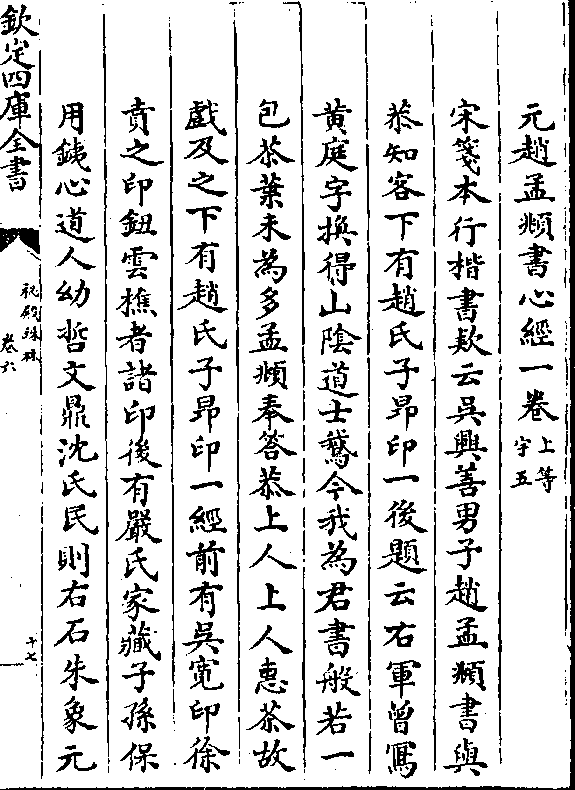 元趙孟頫書心經一卷上等字五
宋箋本行楷書欵云吳興善男子趙孟頫書與
恭知客下有趙氏子昂印一後題云右軍曾寫
黄庭字換得山陰道士鵞今我為君書般若一
包茶葉未為多孟頫奉答恭上人上人惠茶故
戲及之下有趙氏子昂印一經前有吳寛印徐
賁之印鈕雲樵者諸印後有嚴氏家藏子孫保
用銕心道人幼哲文鼎沈氏民則右石朱象元
欽定四庫全書
秘殿珠林
卷六
十七